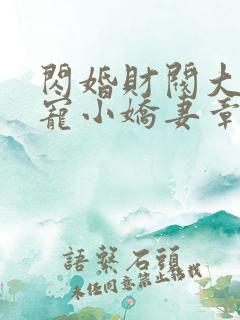 閃婚財閥大
寵小嬌妻章
語繫石頭
未經同意禁止轉載